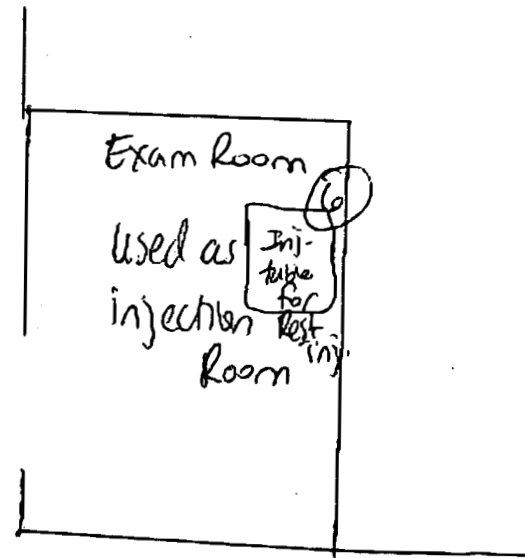 Exam Room
6
used as
injection
Room
Inj-
table
for
Rest
inj.